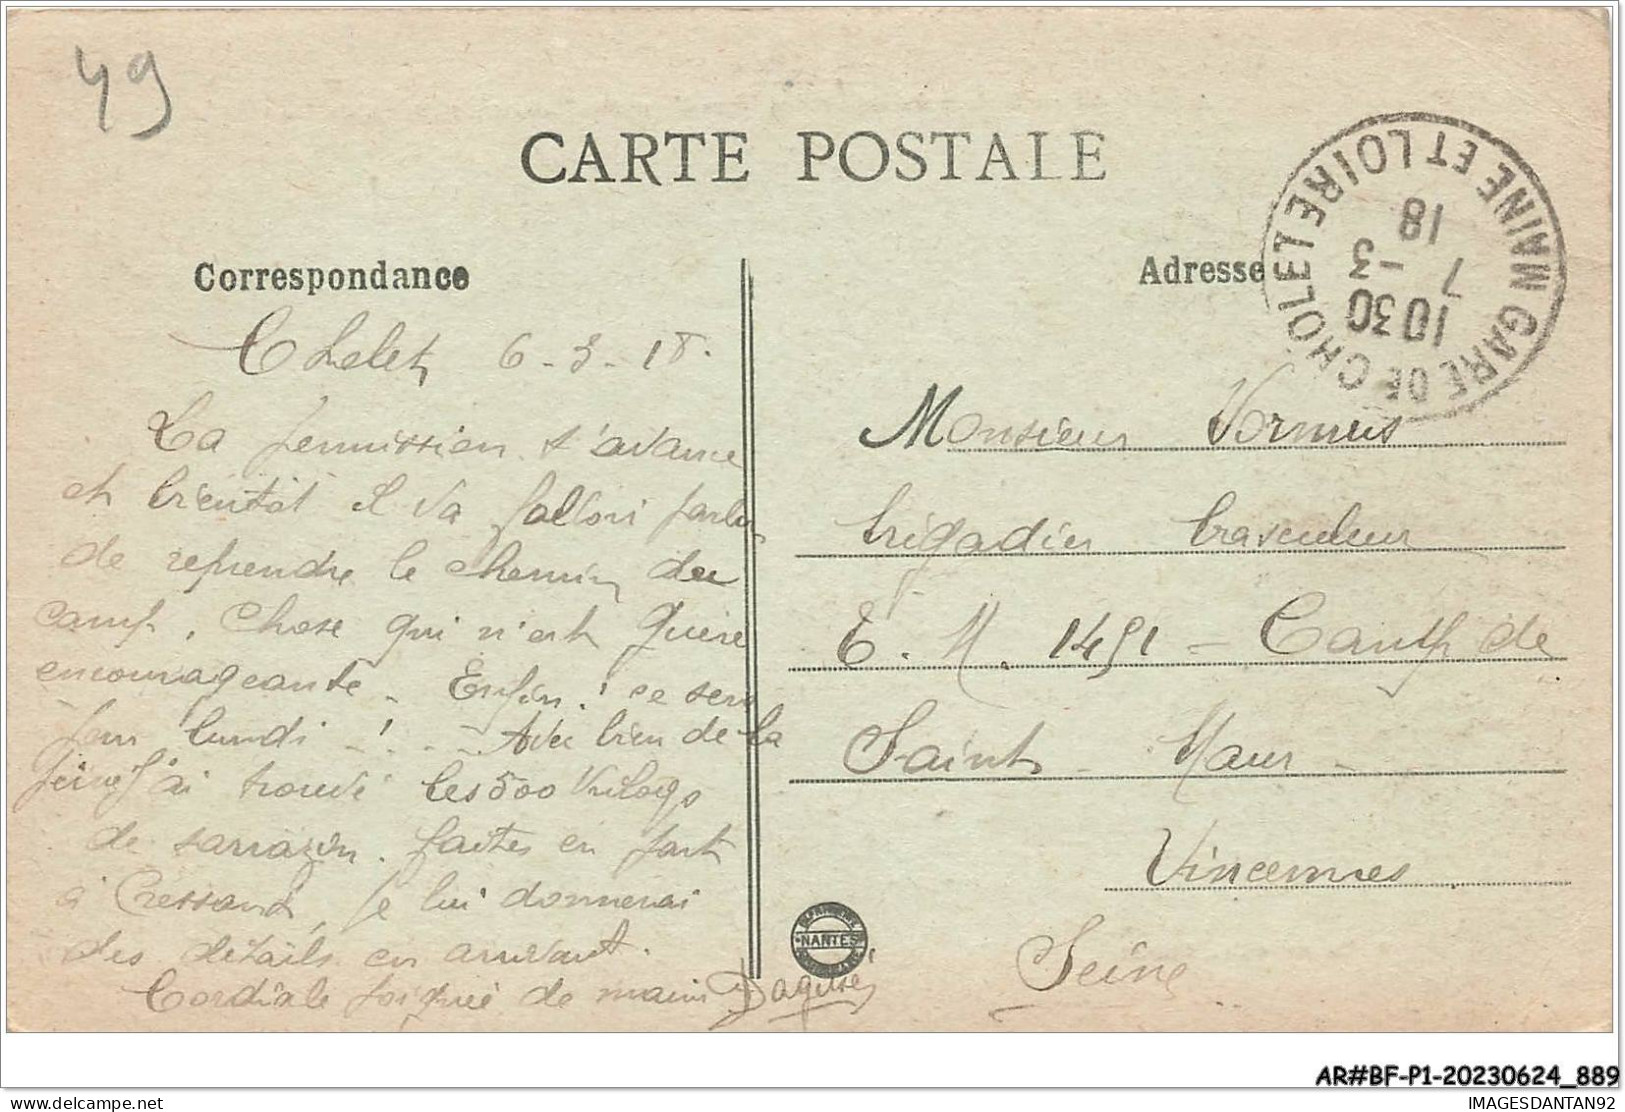 49
CARTE POSTALE
GARE DE CHOLET MAINE ET LOIRE
10 30
7 - 3
18
Correspondance
Adresse
Cholet 6-3-18.
La permission s'avance
et bientôt il va falloir parler
de reprendre le chemin du
camp, chose qui n'est guère
encourageante - Enfin! ce sera
pour lundi -!- Avec bien de la
peine j'ai trouvé les 500 Kilogs
de sarrazin. faites en part
à Cressant, je lui donnerai
des détails en arrivant.
Cordiale poignée de main
Monsieur Vormus
brigadier basculeur
E. M. 1451 - Camp de
Saint-Maur -
Vincennes
Seine
NANTES
AR#BF-P1-20230624_889
delcampe.net
IMAGESDANTAN92